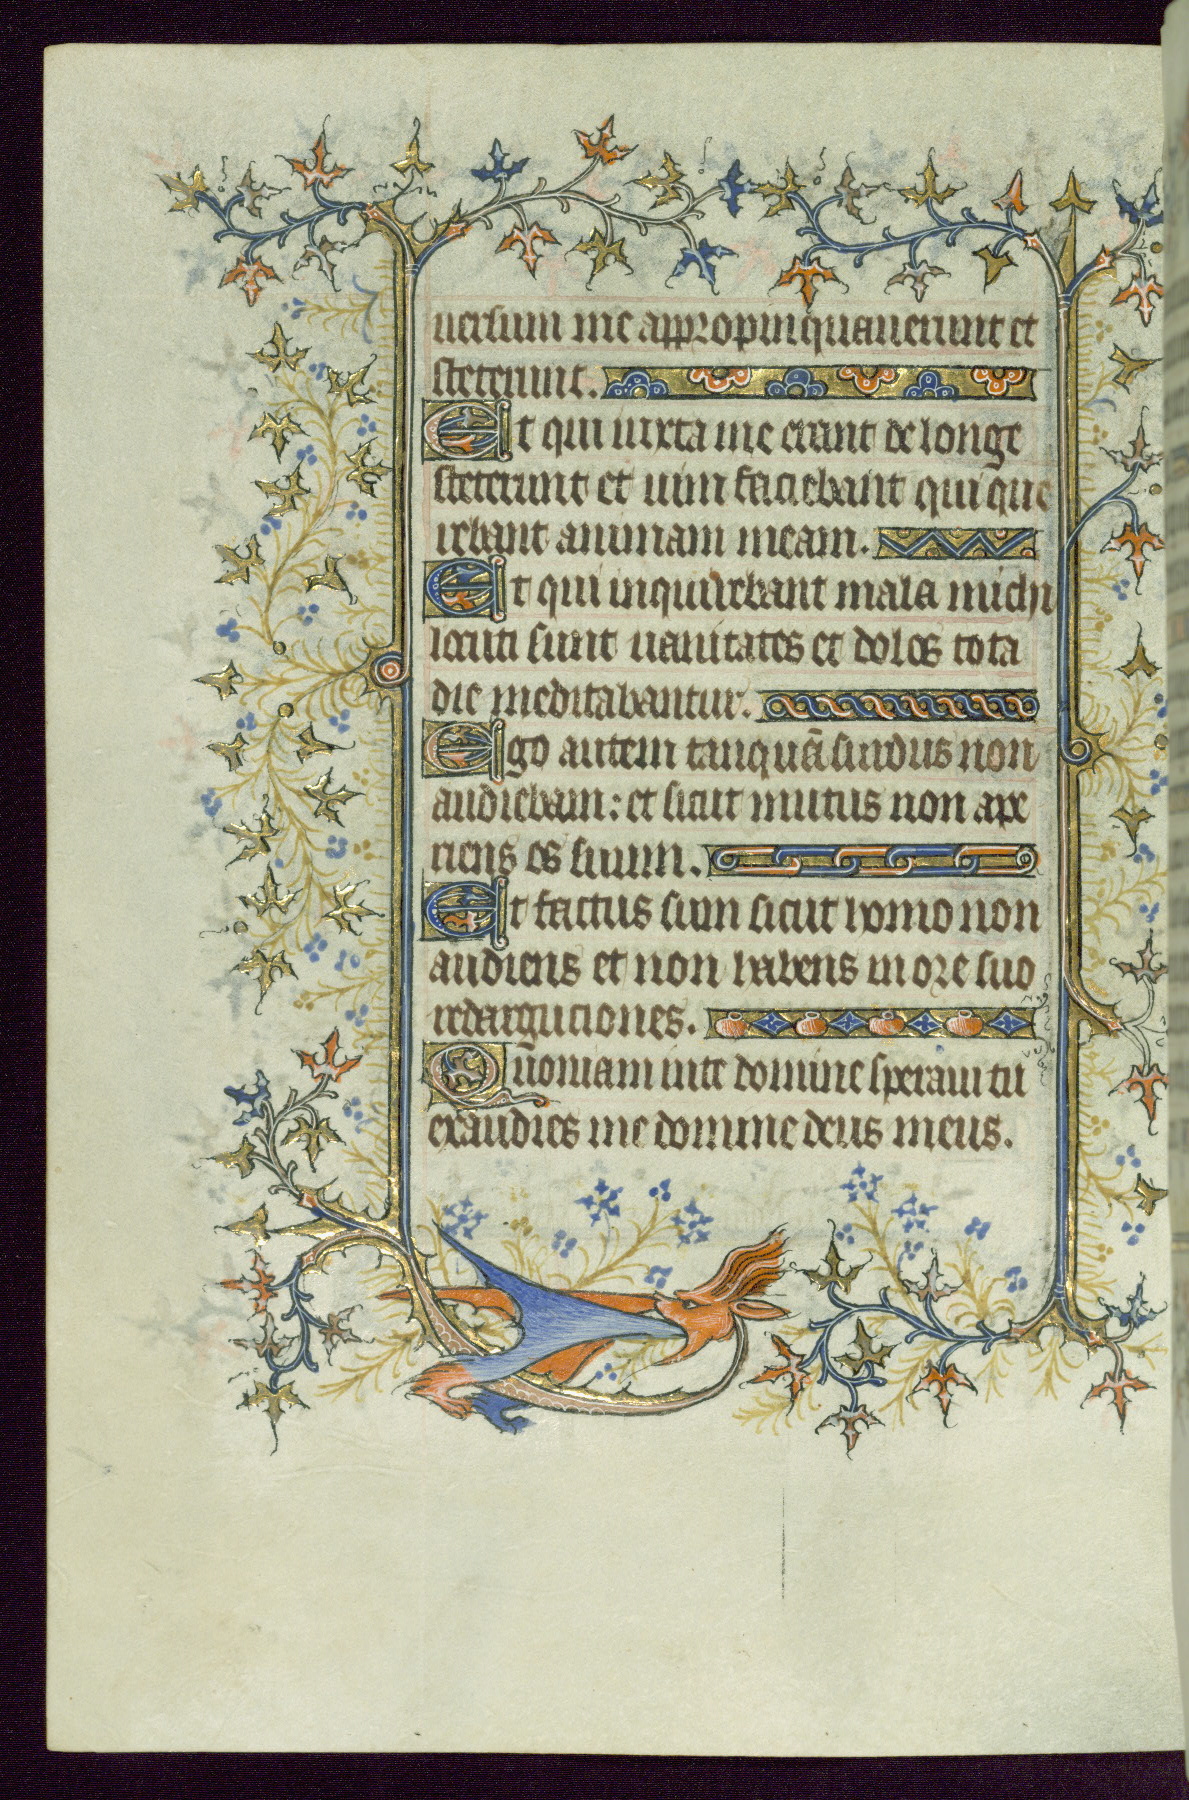 uersum me appropinquauerunt et
steterunt.
Et qui iuxta me erant de longe
steterunt et uim faciebant qui que
rebant animam meam.
Et qui inquirebant mala michi
locuti sunt uanitates et dolos tota
die meditabantur.
Ego autem tanquā surdus non
audiebam: et sicut mutus non ape
riens os suum.
Et factus sum sicut homo non
audiens et non habens in ore suo
redarguciones.
Qūoniam in te domine speraui tu
exaudies me domine deus meus.